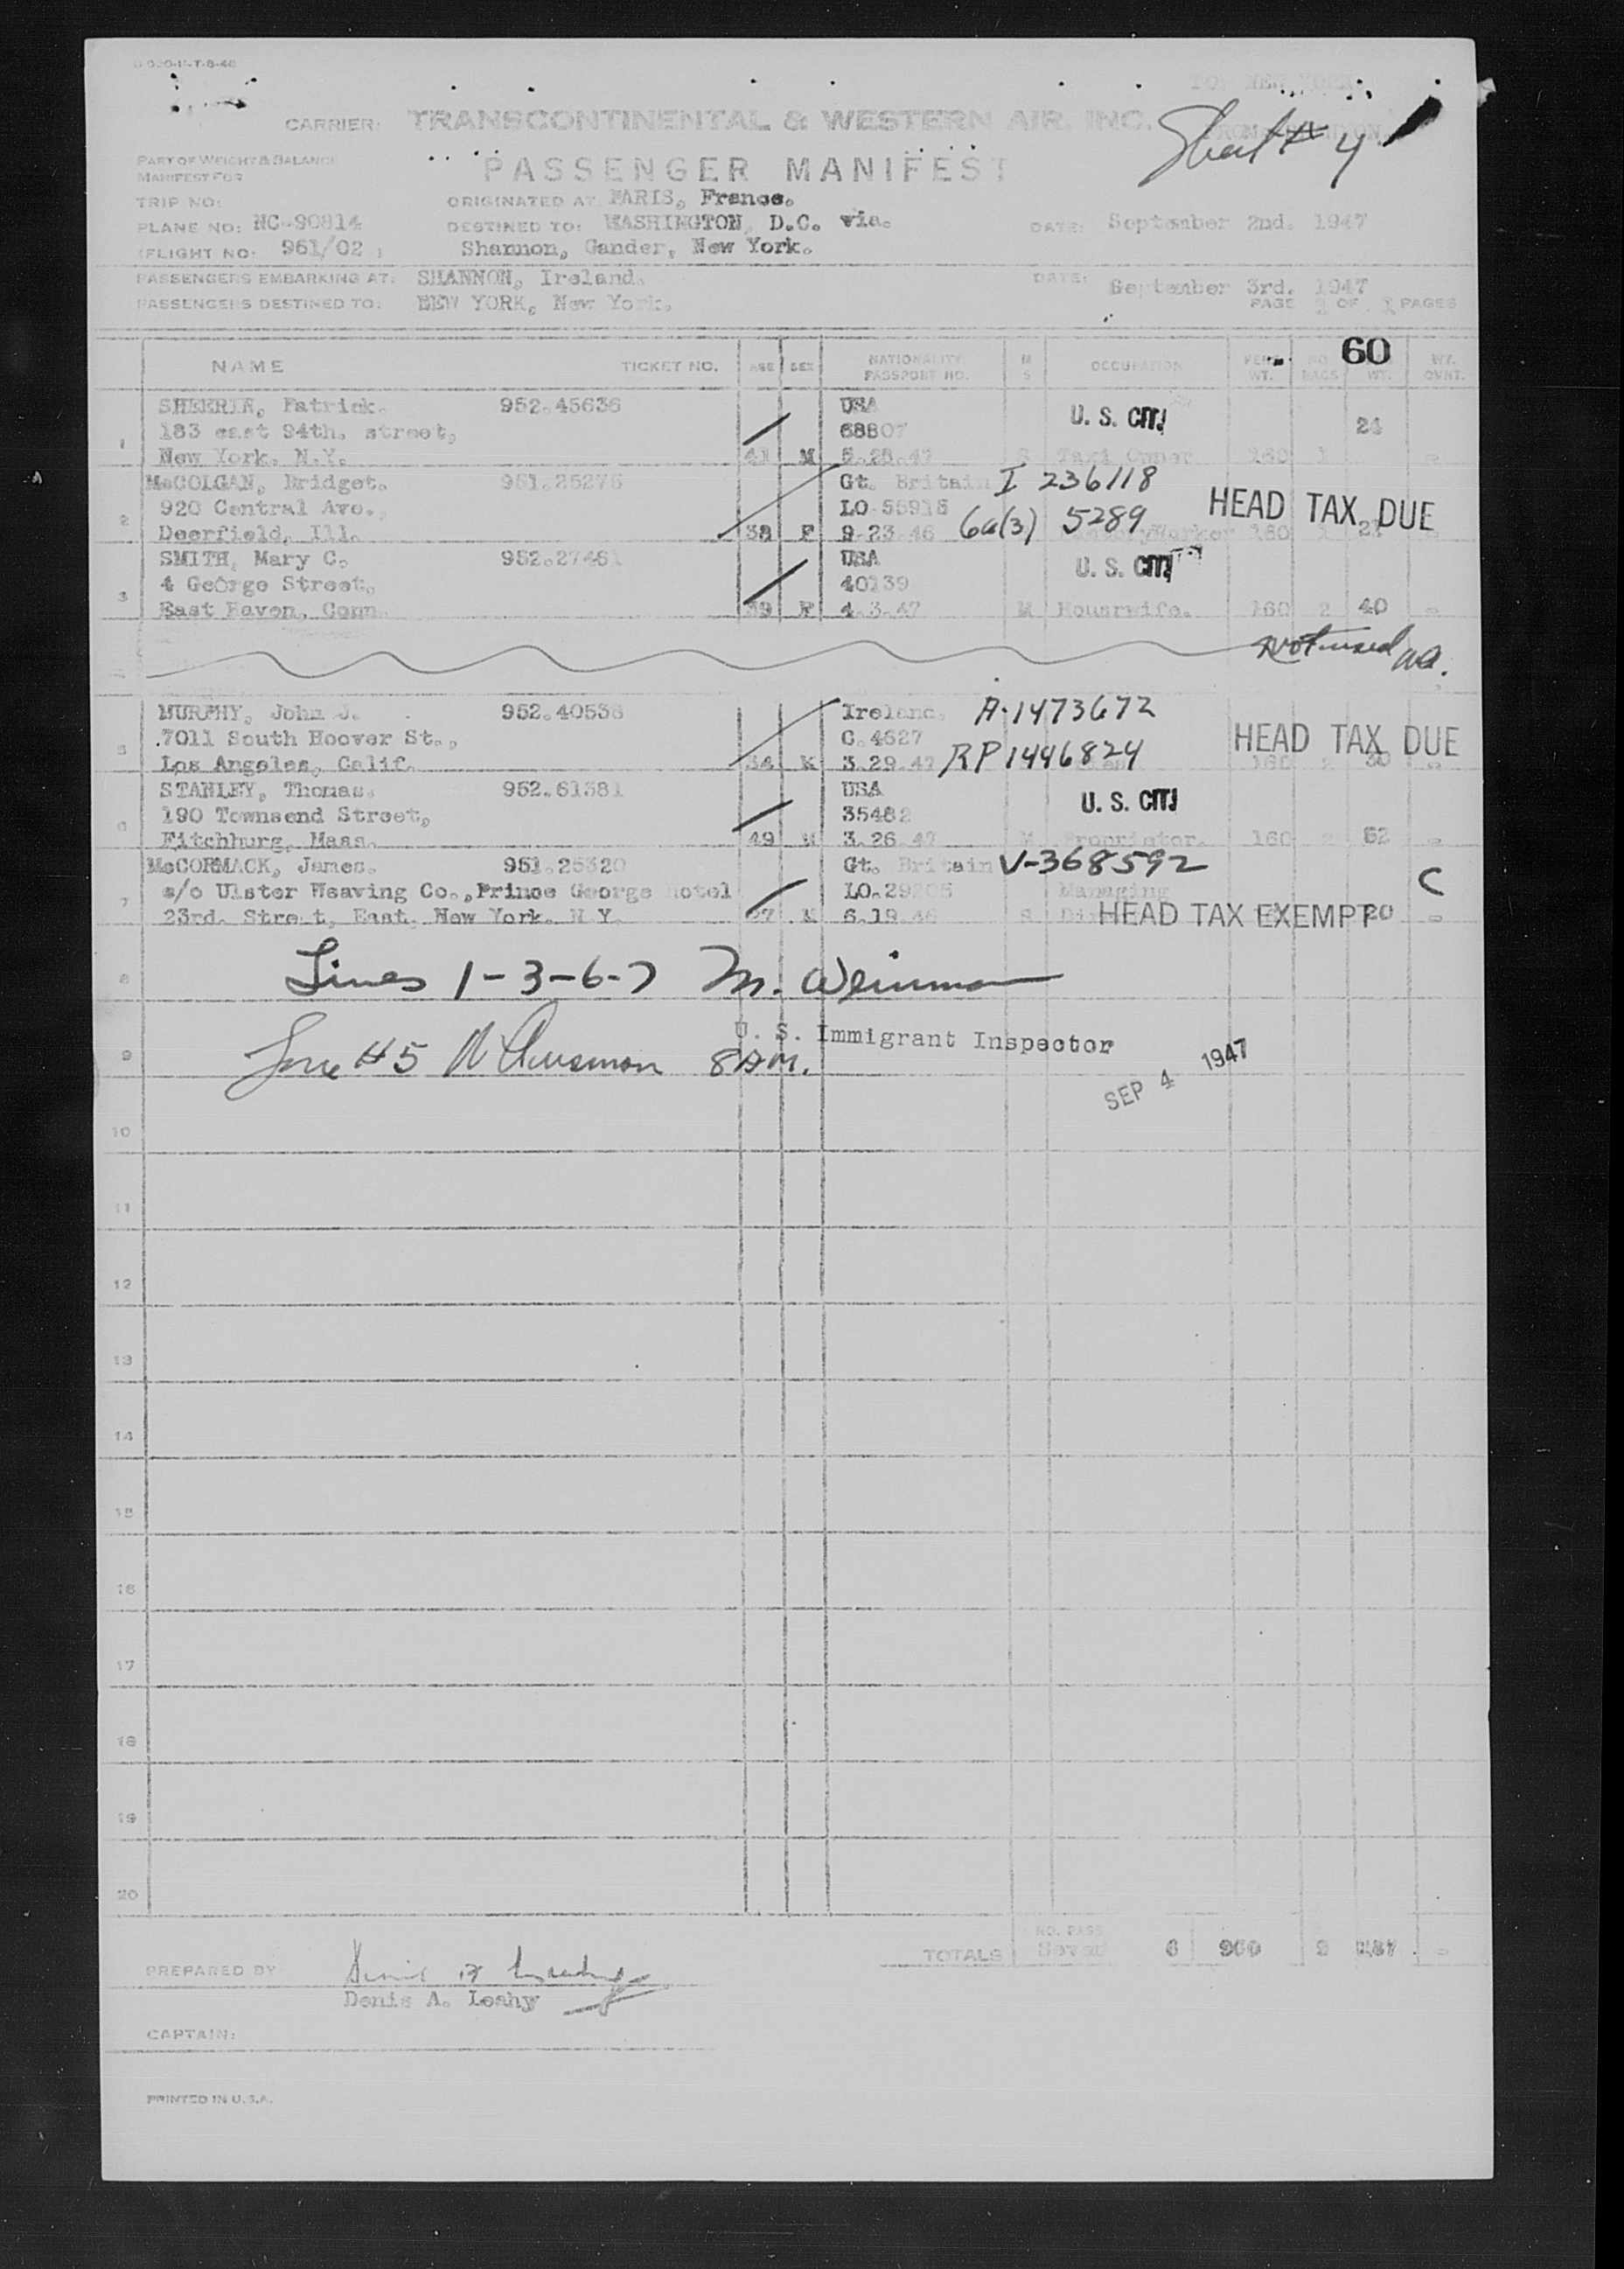 TO: NEW YORK
CARRIER: TRANSCONTINENTAL & WESTERN AIR, INC.
Sheet # 4
PART OF WEIGHT & BALANCE
MANIFEST FOR
PASSENGER MANIFEST
TRIP NO:
ORIGINATED AT: PARIS, France.
PLANE NO: NC-90814
DESTINED TO: WASHINGTON, D.C. via.
DATE: September 2nd. 1947
(FLIGHT NO: 961/02 )
Shannon, Gander, New York.
PASSENGERS EMBARKING AT: SHANNON, Ireland.
DATE: September 3rd. 1947
PASSENGERS DESTINED TO: NEW YORK, New York.
PAGE 1 OF 1 PAGES
60
NAME TICKET NO. AGE SEX NATIONALITY PASSPORT NO. M S OCCUPATION WT. NO. BAGS WT. WT. OVNT.
SHERRIN, Patrick. 952.45636 USA U. S. CIT.
183 east 94th. street, 68807 24
1 New York. N.Y. 41 M 5.28.47 S Taxi Owner 160 1 -
McCOLGAN, Bridget. 951.25276 Gt. Britain I 236118
920 Central Ave., LO 55915 HEAD TAX DUE
2 Deerfield, Ill. 38 F 9-23.46 6a(3) 5289 Worker 160 21 -
SMITH, Mary C. 952.27461 USA U. S. CIT.
4 George Street, 40139
3 East Haven, Conn. 39 F 4.3.47 M Housewife. 160 2 40 -
Not used
MURPHY, John J. 952.40538 Ireland. A-1473672
7011 South Hoover St., C.4627 HEAD TAX DUE
5 Los Angeles, Calif. 34 M 3.29.47 RP 1446824 160 2 30 -
STANLEY, Thomas. 952.61381 USA U. S. CIT.
190 Townsend Street, 35482
6 Fitchburg, Mass. 49 M 3.26.47 M Proprietor. 160 2 52 -
McCORMACK, James. 951.25320 Gt. Britain V-368592
c/o Ulster Weaving Co., Prince George hotel LO.29205 Managing C
7 23rd. Street, East, New York. N.Y. 27 M 6.19.46 S HEAD TAX EXEMPT 20 -
8 Lines 1-3-6-7 M. Weinman
U. S. Immigrant Inspector
9 Line #5 8 AM.
SEP 4 1947
10
11
12
13
14
15
16
17
18
19
20
TOTALS NO. PASS Seven 6 960 9 -
PREPARED BY
Denis A. Leahy
CAPTAIN:
PRINTED IN U.S.A.